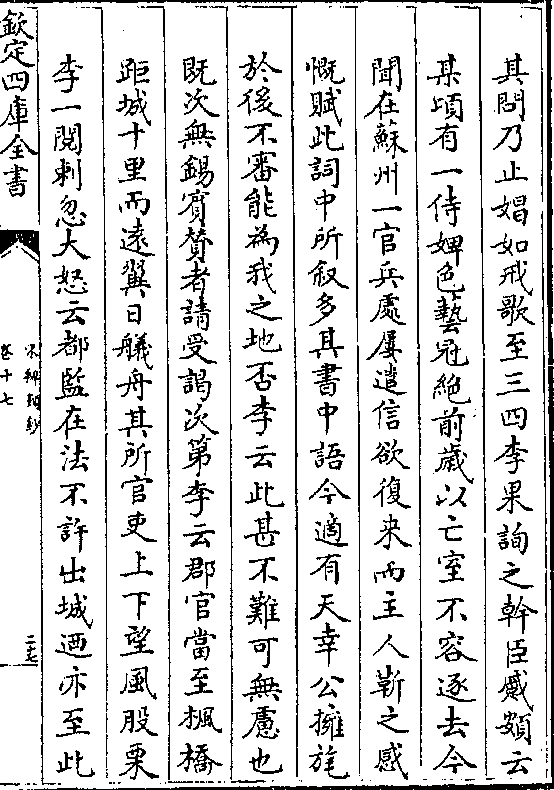 其問乃止娼如戒歌至三四李果詢之幹臣蹙頞云
某頃有一侍婢色藝冠絕前歲以亡室不容逐去今
聞在蘇州一官兵處屢遣信欲復來而主人靳之感
慨賦此詞中所叙多其書中語今適有天幸公擁旄
於後不審能為我之地否李云此甚不難可無慮也
既次無錫賓贊者請受謁次第李云郡官當至楓橋
距城十里而遠翼日艤舟其所官吏上下望風股栗
李一閱刺忽大怒云都監在法不許出城迺亦至此
欽定四庫全書
卷十七
二十七